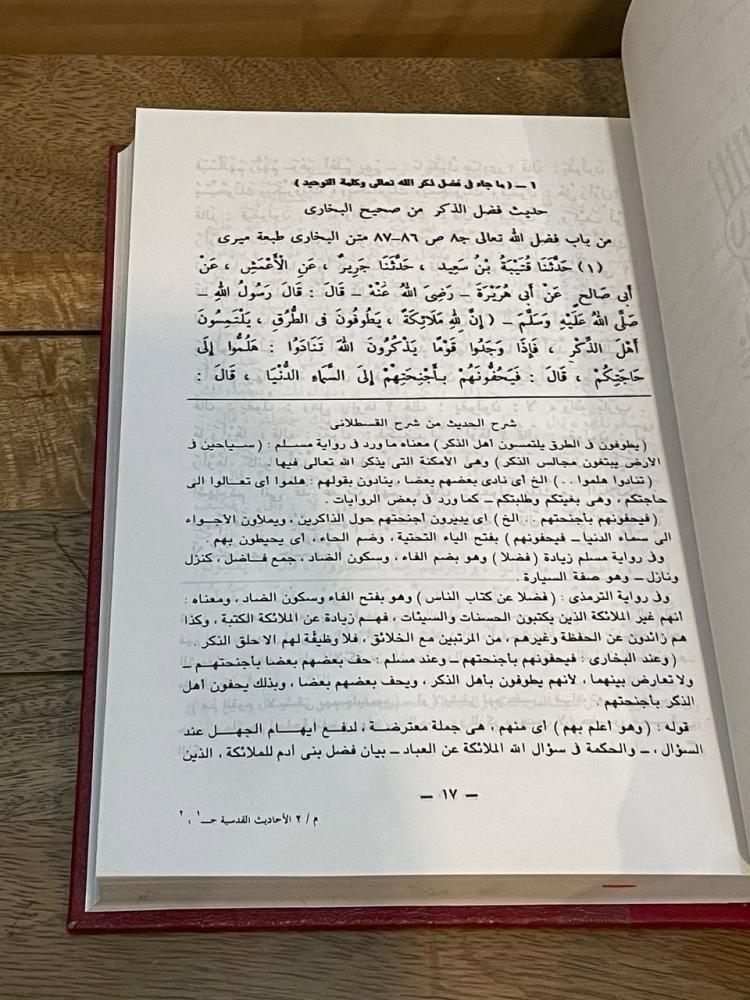 ١ ــ ( ما جاء فى فضل ذكر الله تعالى وكلمة التوحيد )
حديث فضل الذكر من صحيح البخارى
من باب فضل الله تعالى جـ٨ ص ٨٦ــ٨٧ متن البخارى طبعة ميرى
(١) حَدَّثَنَا قُتَيْبَةُ بْنُ سَعِيدٍ ، حَدَّثَنَا جَرِيرٌ ، عَنِ الْأَعْمَشِ ، عَنْ
أَبِى صَالِحٍ عَنْ أَبِى هُرَيْرَةَ ــ رَضِىَ اللهُ عَنْهُ ــ قَالَ : قَالَ رَسُولُ اللهِ ــ
صَلَّى اللهُ عَلَيْهِ وَسَلَّمَ ــ ( إِنَّ لِلهِ مَلَائِكَةً ، يَطُوفُونَ فِى الطُّرُقِ ، يَلْتَمِسُونَ
أَهْلَ الذِّكْرِ ، فَإِذَا وَجَدُوا قَوْمًا يَذْكُرُونَ اللهَ تَنَادَوْا : هَلُمُّوا إِلَى
حَاجَتِكُمْ ، قَالَ : فَيَحُفُّونَهُمْ بِأَجْنِحَتِهِمْ إِلَى السَّمَاءِ الدُّنْيَا ، قَالَ :
شرح الحديث من شرح القسطلانى
( يطوفون فى الطرق يلتمسون أهل الذكر ) معناه ما ورد فى رواية مسلم : ( سياحين فى
الأرض يبتغون مجالس الذكر ) وهى الأمكنة التى يذكر الله تعالى فيها .
( تنادوا هلموا . . ) الخ أى نادى بعضهم بعضا ، ينادون بقولهم : هلموا أى تعالوا الى
حاجتكم ، وهى بغيتكم وطلبتكم ــ كما ورد فى بعض الروايات .
( فيحفونهم بأجنحتهم . . الخ ) أى يديرون أجنحتهم حول الذاكرين ، ويملأون الأجواء
الى سماء الدنيا ــ فيحفونهم ) بفتح الياء التحتية ، وضم الحاء ، أى يحيطون بهم .
وفى رواية مسلم زيادة ( فضلا ) وهو بضم الفاء ، وسكون الضاد ، جمع فاضل ، كنزل
ونازل ــ وهو صفة السيارة .
وفى رواية الترمذى : ( فضلا عن كتاب الناس ) وهو بفتح الفاء وسكون الضاد ، ومعناه :
انهم غير الملائكة الذين يكتبون الحسنات والسيئات ، فهم زيادة عن الملائكة الكتبة ، وكذا
هم زائدون عن الحفظة وغيرهم ، من المرتبين مع الخلائق ، فلا وظيفة لهم الا حلق الذكر .
( وعند البخارى : فيحفونهم بأجنحتهم ــ وعند مسلم : حف بعضهم بعضا بأجنحتهم ــ
ولا تعارض بينهما ، لأنهم يطوفون بأهل الذكر ، ويحف بعضهم بعضا ، وبذلك يحفون أهل
الذكر بأجنحتهم .
قوله : ( وهو أعلم بهم ) أى منهم ، هى جملة معترضة ، لدفع ايهام الجهل عند
السؤال ، ــ والحكمة فى سؤال الله الملائكة عن العباد ــ بيان فضل بنى آدم للملائكة ، الذين
ــ ١٧ ــ
م / ٢ الأحاديث القدسية جـ١ ، ٢